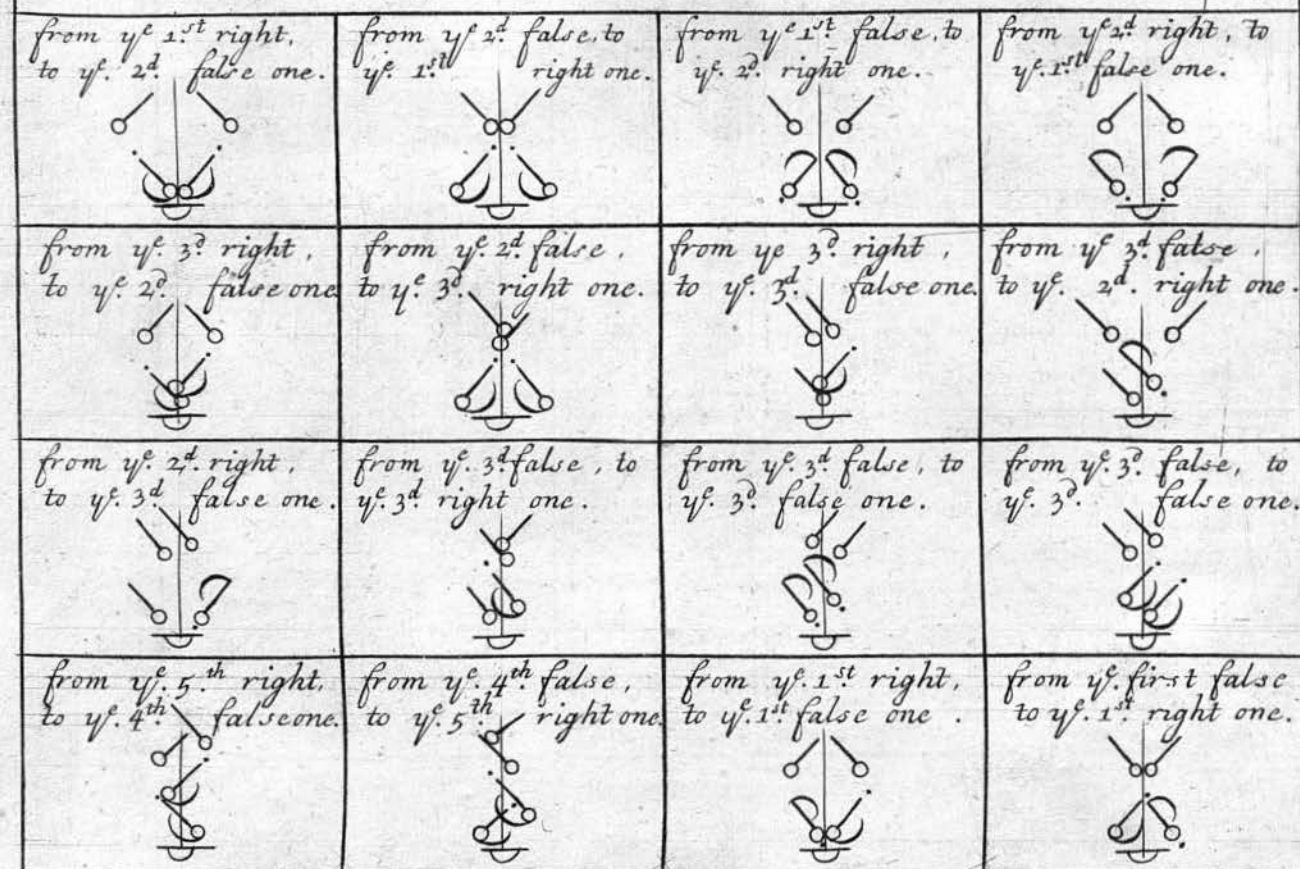 from yᵉ 1.ˢᵗ right,
to yᵉ. 2ᵈ. false one.
from yᵉ 2ᵈ false, to
yᵉ. 1.ˢᵗ right one.
from yᵉ 1ˢᵗ false, to
yᵉ. 2ᵈ. right one.
from yᵉ 2ᵈ right, to
yᵉ. 1ˢᵗ false one.
from yᵉ. 3ᵈ right,
to yᵉ. 2ᵈ. false one
from yᵉ. 2ᵈ false,
to yᵉ. 3ᵈ. right one.
from ye 3ᵈ right,
to yᵉ. 3ᵈ. false one.
from yᵉ 3ᵈ false,
to yᵉ. 2ᵈ. right one.
from yᵉ. 2ᵈ. right,
to yᵉ. 3ᵈ false one.
from yᵉ. 3ᵈ false, to
yᵉ. 3ᵈ. right one.
from yᵉ. 3ᵈ false, to
yᵉ. 3ᵈ. false one.
from yᵉ. 3ᵈ false, to
yᵉ. 3ᵈ. false one.
from yᵉ. 5.ᵗʰ right,
to yᵉ. 4ᵗʰ. false one.
from yᵉ. 4ᵗʰ. false,
to yᵉ. 5ᵗʰ right one.
from yᵉ. 1ˢᵗ right,
to yᵉ. 1ˢᵗ false one.
from yᵉ. first false
to yᵉ. 1ˢᵗ. right one.